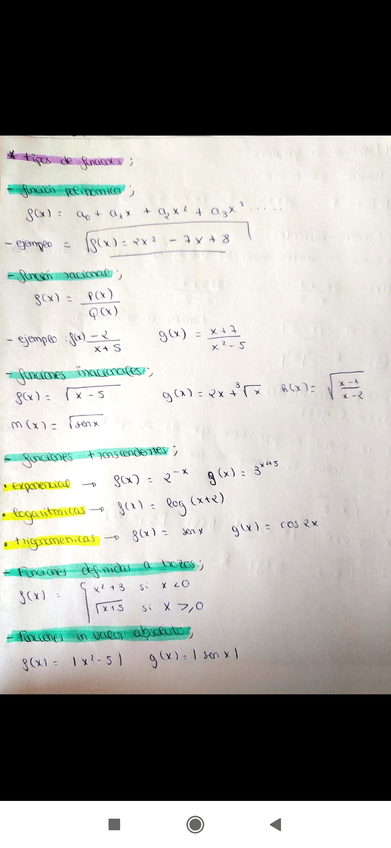 * tipos de funciones;
- función polinómica;
f(x) = a₀ + a₁x + a₂x² + a₃x³ .....
- ejemplo = f(x) = 2x² - 7x + 8
- función racional;
f(x) = P(x)/Q(x)
- ejemplo: f(x) -2/x+5 g(x) = x+7/x²-5
- funciones irracionales;
f(x) = √x-5 g(x) = 2x + ³√x h(x) = √x-1/x-2
m(x) = √sen x
- funciones trascendentes;
• exponencial → f(x) = 2⁻ˣ g(x) = 3ˣ⁺⁵
• logarítmicas → f(x) = log (x+2)
• trigonométricas → f(x) = sen x g(x) = cos 2x
- Funciones definidas a trozos;
f(x) = { x²+3 si x < 0
√x+5 si x ≥ 0
- Funciones en valor absoluto;
f(x) = |x²-5| g(x) = |sen x|